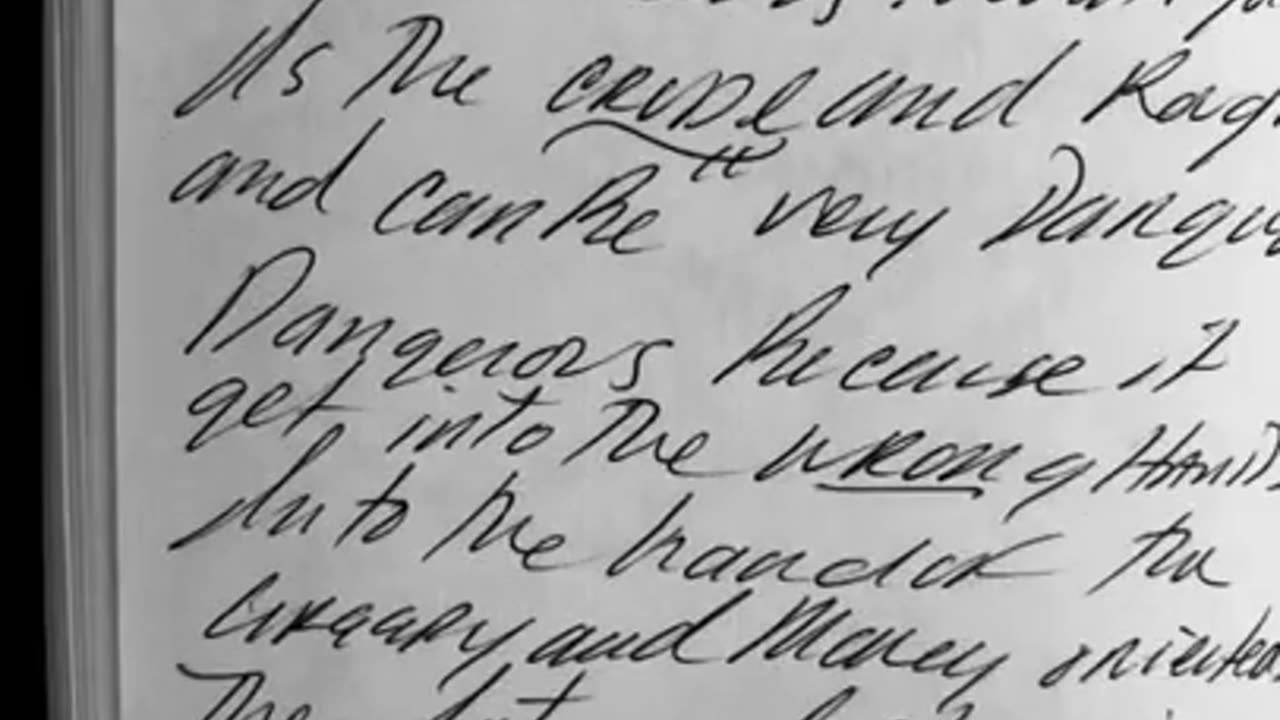 Its the CRUDE and
and can be very
Dangerous because it
get into the WRONG HANDS
Into the hand of the
and Money oriented
The